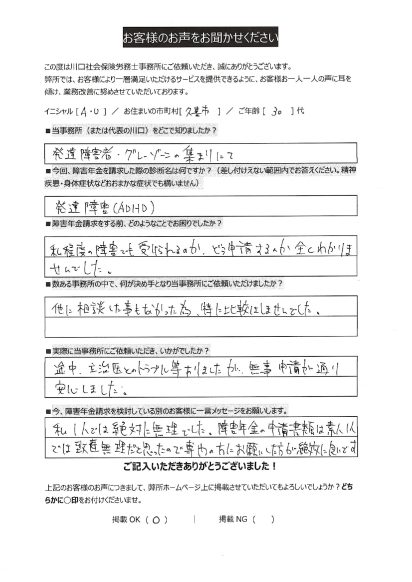 お客様のお声をお聞かせください
この度は川口社会保険労務士事務所にご依頼いただき、誠にありがとうございます。
弊所では、お客様により一層満足いただけるサービスを提供できるように、お客様お一人一人の声に耳を
傾け、業務改善に努めさせていただいております。
イニシャル [ A・U ] / お住まいの市町村 [ 久喜市 ] / ご年齢 [ 30 ] 代
■当事務所（または代表の川口）をどこで知りましたか？
発達障害者・グレーゾーンの集まりにて
■今回、障害年金を請求した際の診断名は何ですか？（差し付けえない範囲内でお答えください。精神
疾患・身体症状などおおまかな症状でも構いません）
発達障害(ADHD)
■障害年金請求をする前、どのようなことでお困りでしたか？
私程度の障害でも受けられるのか、どう申請するのか全くわかりま
せんでした。
■数ある事務所の中で、何が決め手となり当事務所にご依頼いただけましたか？
他に相談した事もなかった為、特に比較はしませんでした。
■実際に当事務所にご依頼いただき、いかがでしたか？
途中、主治医とのトラブル等ありましたが、無事申請が通り
安心しました。
■今、障害年金請求を検討している別のお客様に一言メッセージをお願いします。
私1人では絶対に無理でした。障害年金の申請書類は素人1人
では到底無理だと思ったので専門の方にお願いした方が絶対に良いです
ご記入いただきありがとうございました！
上記のお客様のお声につきまして、弊所ホームページ上に掲載させていただいてもよろしいでしょうか？どち
らかに〇印をお付けくださいませ。
掲載 OK（ 〇 ） | 掲載 NG（ ）